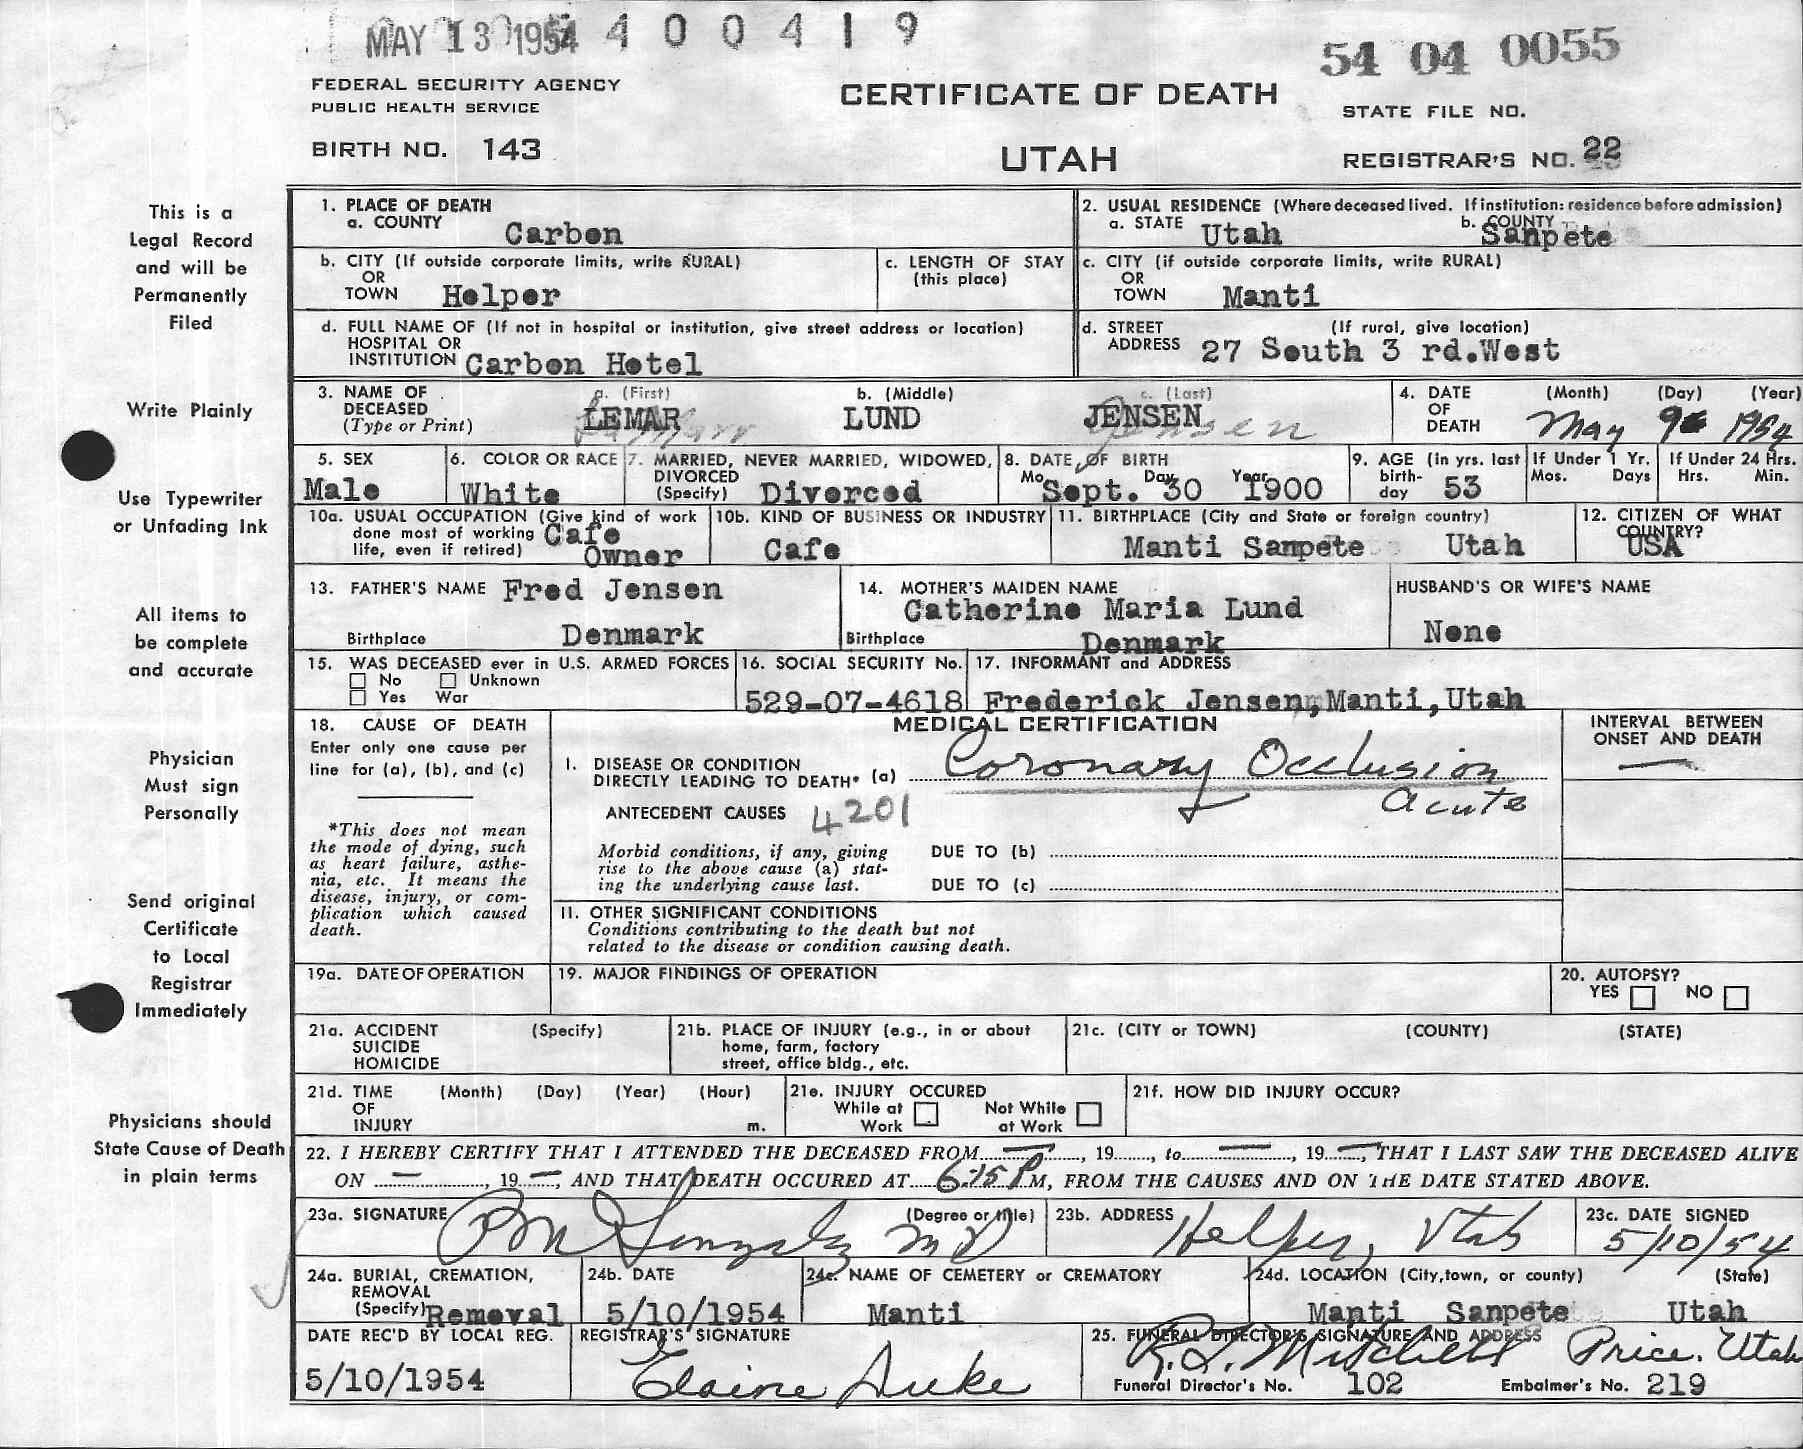 MAY 13 1954 4 0 0 4 1 9
54 04 0055
FEDERAL SECURITY AGENCY
PUBLIC HEALTH SERVICE
CERTIFICATE OF DEATH
STATE FILE NO.
BIRTH NO. 143
UTAH
REGISTRAR'S NO. 22
This is a
Legal Record
and will be
Permanently
Filed
Write Plainly
Use Typewriter
or Unfading Ink
All items to
be complete
and accurate
Physician
Must sign
Personally
Send original
Certificate
to Local
Registrar
Immediately
Physicians should
State Cause of Death
in plain terms
1. PLACE OF DEATH
a. COUNTY Carbon
2. USUAL RESIDENCE (Where deceased lived. If institution: residence before admission)
a. STATE Utah b. COUNTY Sanpete
b. CITY (If outside corporate limits, write RURAL)
OR
TOWN Helper
c. LENGTH OF STAY
(this place)
c. CITY (if outside corporate limits, write RURAL)
OR
TOWN Manti
d. FULL NAME OF (If not in hospital or institution, give street address or location)
HOSPITAL OR
INSTITUTION Carbon Hotel
d. STREET (If rural, give location)
ADDRESS 27 South 3 rd.West
3. NAME OF
DECEASED
(Type or Print)
a. (First) b. (Middle) c. (Last)
LEMAR LUND JENSEN
Jensen
4. DATE (Month) (Day) (Year)
OF
DEATH May 9 1954
5. SEX
Male
6. COLOR OR RACE
White
7. MARRIED, NEVER MARRIED, WIDOWED,
DIVORCED
(Specify) Divorced
8. DATE OF BIRTH
Mo. Day Year
Sept. 30 1900
9. AGE (in yrs. last
birth-
day 53
If Under 1 Yr.
Mos. Days
If Under 24 Hrs.
Hrs. Min.
10a. USUAL OCCUPATION (Give kind of work
done most of working
life, even if retired) Cafe
Owner
10b. KIND OF BUSINESS OR INDUSTRY
Cafe
11. BIRTHPLACE (City and State or foreign country)
Manti Sanpete Utah
12. CITIZEN OF WHAT
COUNTRY?
USA
13. FATHER'S NAME Fred Jensen
Birthplace Denmark
14. MOTHER'S MAIDEN NAME
Catherine Maria Lund
Birthplace Denmark
HUSBAND'S OR WIFE'S NAME
None
15. WAS DECEASED ever in U.S. ARMED FORCES
No Unknown
Yes War
16. SOCIAL SECURITY No.
529-07-4618
17. INFORMANT and ADDRESS
Frederick Jensen, Manti, Utah
18. CAUSE OF DEATH
Enter only one cause per
line for (a), (b), and (c)
*This does not mean
the mode of dying, such
as heart failure, asthe-
nia, etc. It means the
disease, injury, or com-
plication which caused
death.
MEDICAL CERTIFICATION
I. DISEASE OR CONDITION
DIRECTLY LEADING TO DEATH* (a) Coronary Occlusion
acute
ANTECEDENT CAUSES 4201
Morbid conditions, if any, giving
rise to the above cause (a) stat-
ing the underlying cause last.
DUE TO (b)
DUE TO (c)
II. OTHER SIGNIFICANT CONDITIONS
Conditions contributing to the death but not
related to the disease or condition causing death.
INTERVAL BETWEEN
ONSET AND DEATH
—
19a. DATE OF OPERATION
19. MAJOR FINDINGS OF OPERATION
20. AUTOPSY?
YES NO
21a. ACCIDENT (Specify)
SUICIDE
HOMICIDE
21b. PLACE OF INJURY (e.g., in or about
home, farm, factory
street, office bldg., etc.
21c. (CITY or TOWN) (COUNTY) (STATE)
21d. TIME (Month) (Day) (Year) (Hour)
OF
INJURY m.
21e. INJURY OCCURED
While at Work
Not While at Work
21f. HOW DID INJURY OCCUR?
22. I HEREBY CERTIFY THAT I ATTENDED THE DECEASED FROM — , 19 , to — , 19 — , THAT I LAST SAW THE DECEASED ALIVE
ON — , 19 — , AND THAT DEATH OCCURED AT 6:15 P M, FROM THE CAUSES AND ON THE DATE STATED ABOVE.
23a. SIGNATURE (Degree or title)
MD
23b. ADDRESS
Helper, Utah
23c. DATE SIGNED
5/10/54
24a. BURIAL, CREMATION,
REMOVAL
(Specify) Removal
24b. DATE
5/10/1954
24c. NAME OF CEMETERY or CREMATORY
Manti
24d. LOCATION (City, town, or county) (State)
Manti Sanpete Utah
DATE REC'D BY LOCAL REG.
5/10/1954
REGISTRAR'S SIGNATURE
Elaine
25. FUNERAL DIRECTOR'S SIGNATURE AND ADDRESS
R. L. Mitchell Price, Utah
Funeral Director's No. 102 Embalmer's No. 219